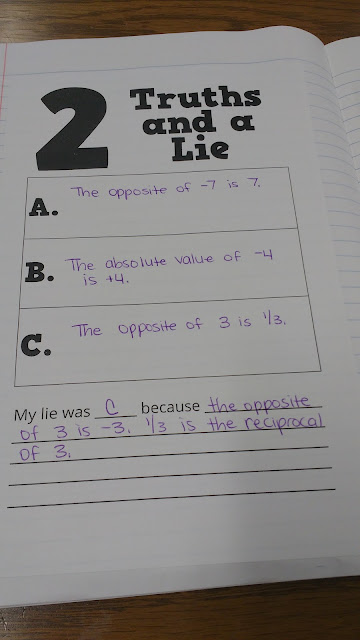 2 Truths
and a
Lie
A. The opposite of -7 is 7.
B. The absolute value of -4
is +4.
C. The opposite of 3 is 1/3.
My lie was C because the opposite
of 3 is -3. 1/3 is the reciprocal
of 3.